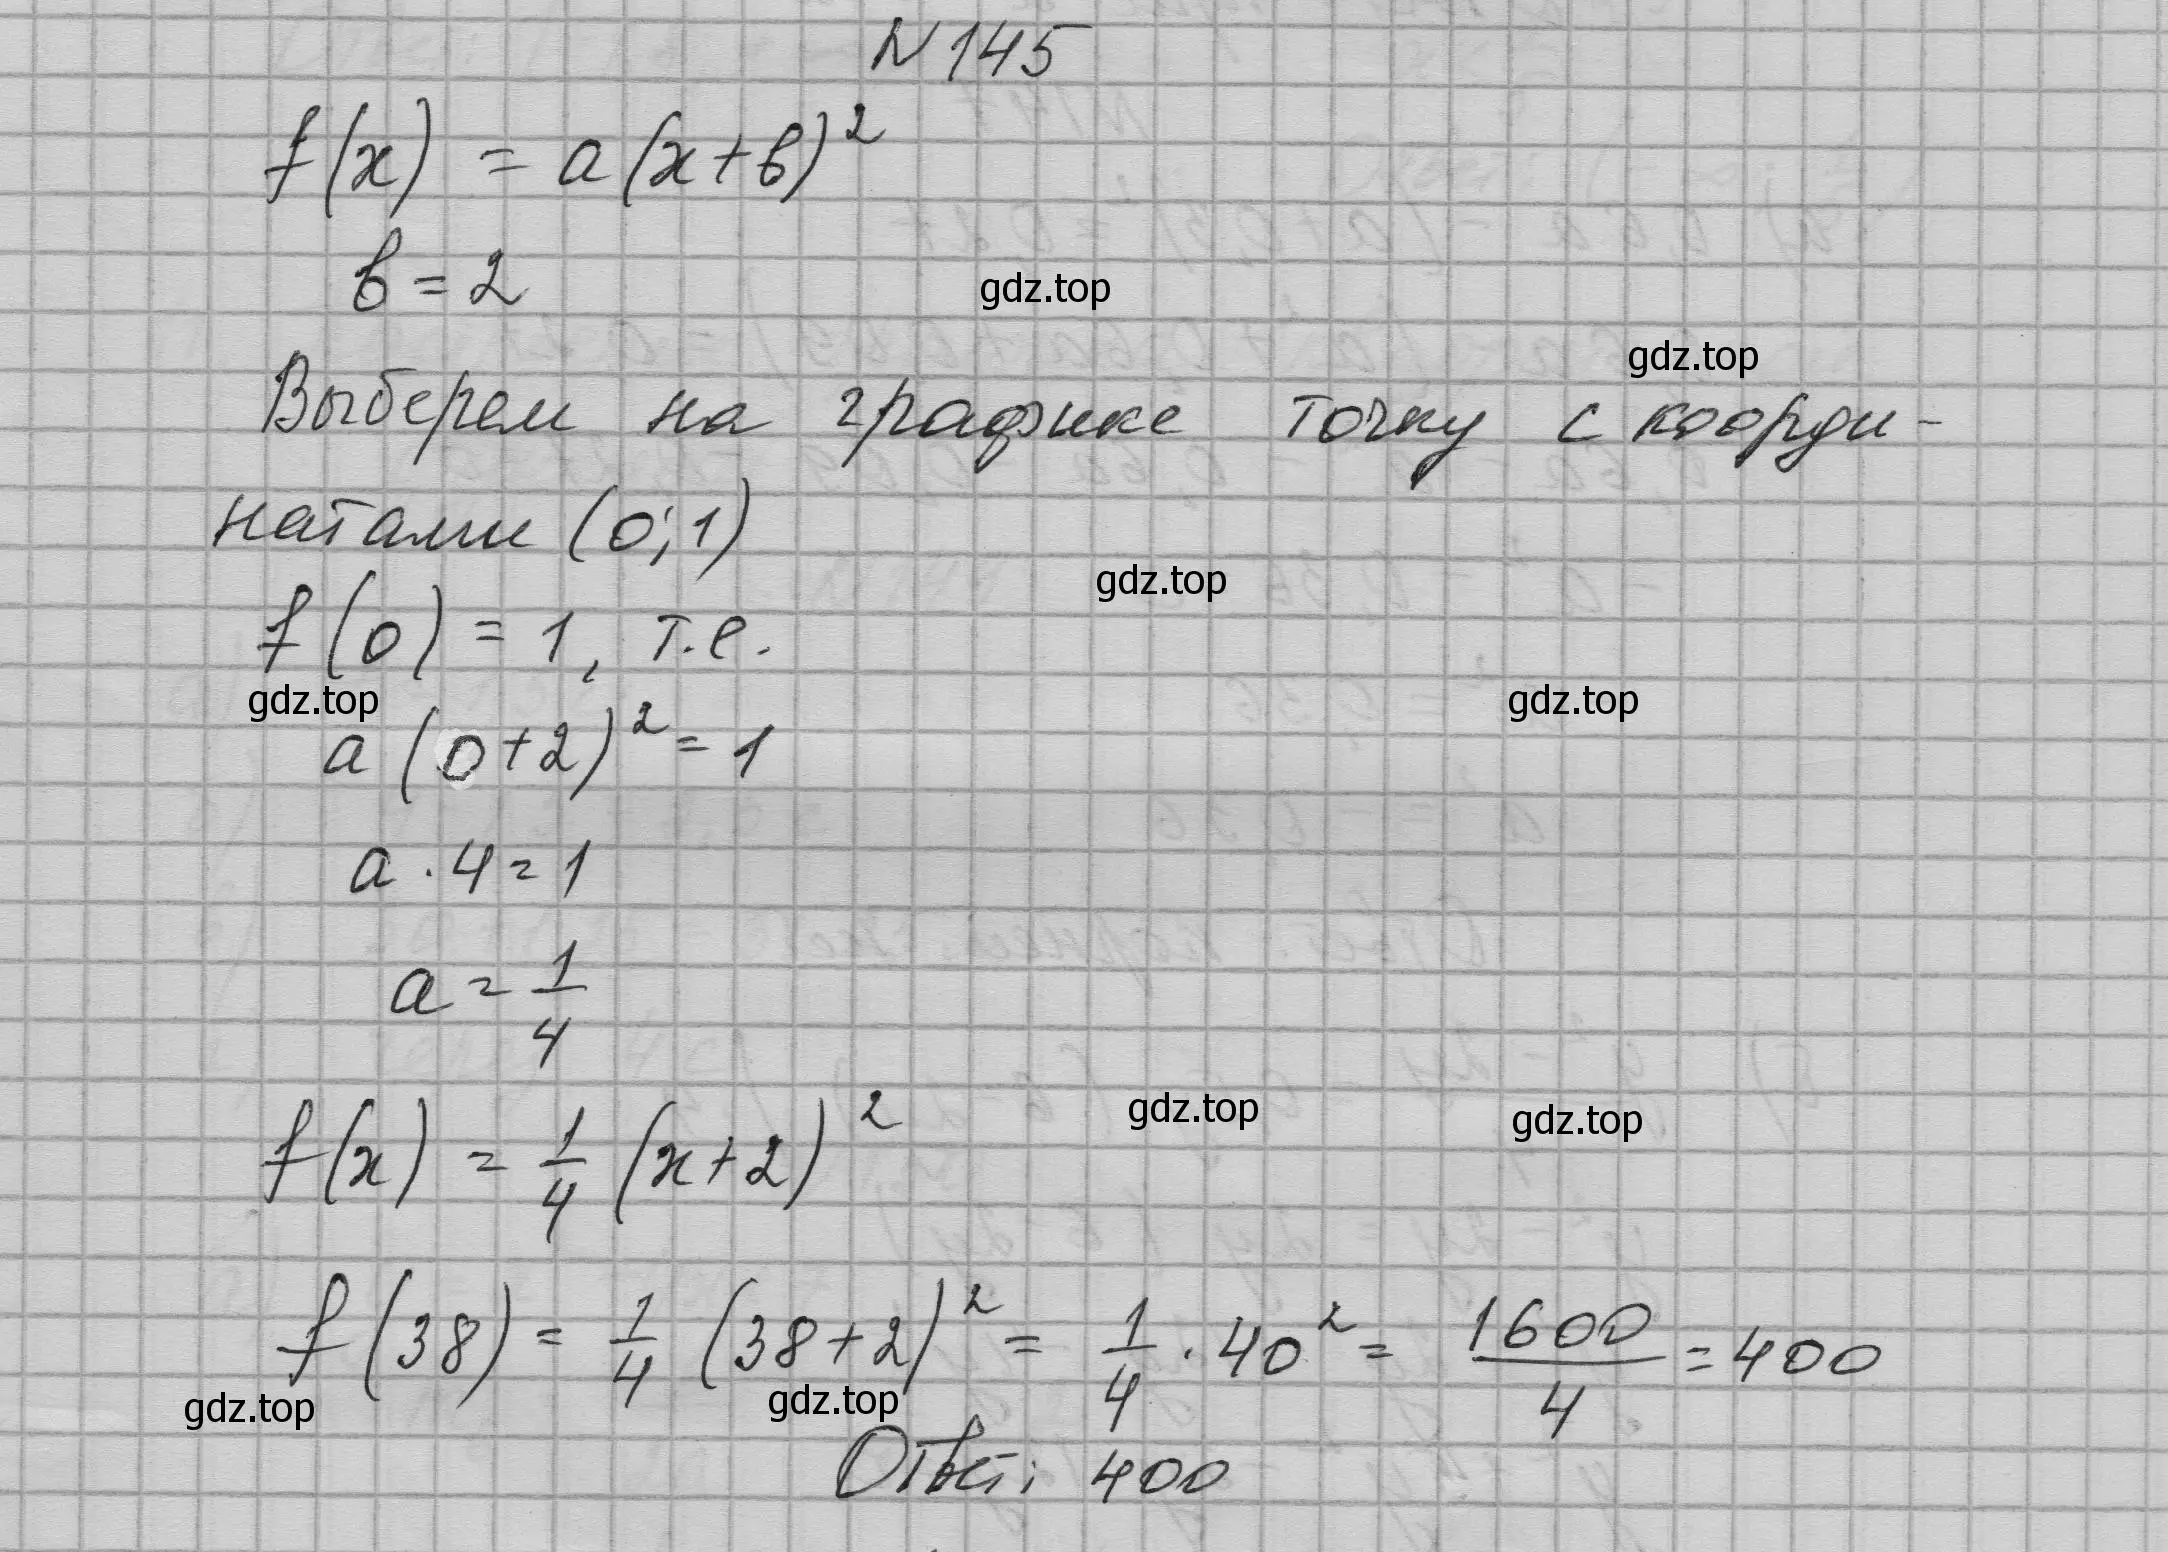 N 145
f(x) = a(x+b)²
b = 2
gdz.top
gdz.top
Выберем на графике точку с коорди-
натами (0; 1)
gdz.top
f(0) = 1, т.е.
gdz.top
gdz.top
a(0+2)² = 1
a · 4 = 1
a = 1/4
gdz.top
gdz.top
f(x) = 1/4 (x+2)²
f(38) = 1/4 (38+2)² = 1/4 · 40² = 1600/4 = 400
gdz.top
gdz.top
Ответ: 400